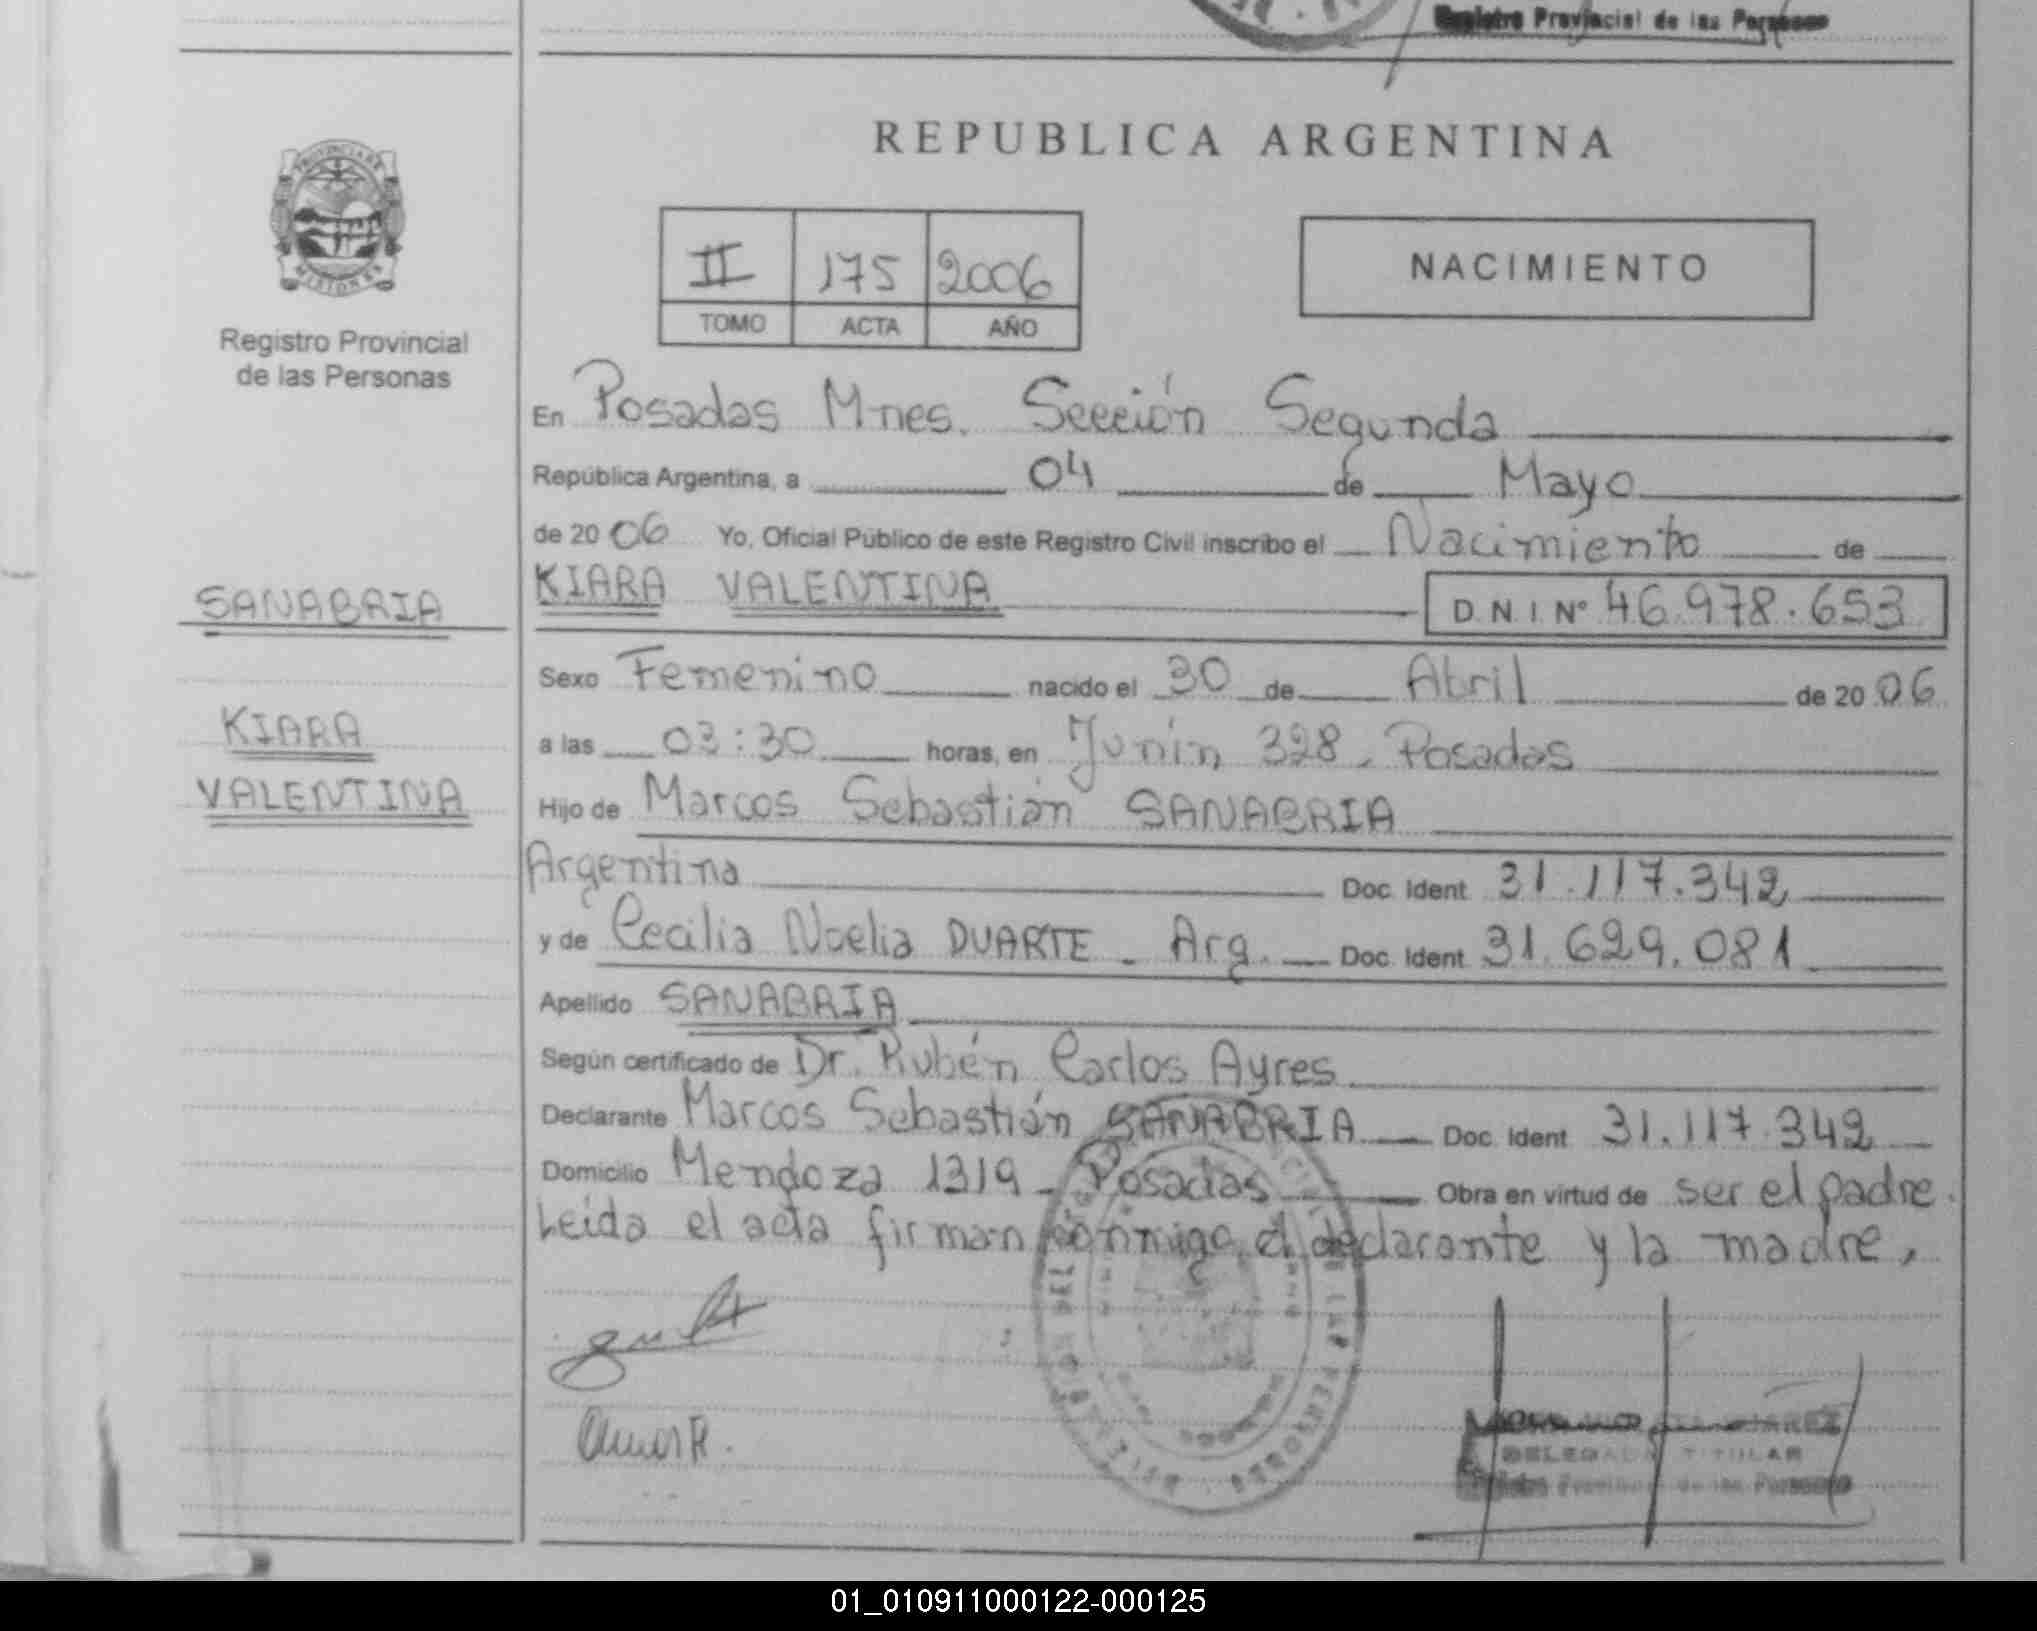 Registro Provincial de las Personas
REPUBLICA ARGENTINA
PROVINCIA DE
MISIONES
Registro Provincial
de las Personas
II 175 2006
TOMO ACTA AÑO
NACIMIENTO
En Posadas Mnes. Sección Segunda
República Argentina, a 04 de Mayo
de 20 06 Yo, Oficial Público de este Registro Civil inscribo el Nacimiento de
KIARA VALENTINA D.N.I. Nº 46.978.653
SANABRIA
KIARA
VALENTINA
Sexo Femenino nacido el 30 de Abril de 20 06
a las 03:30 horas, en Junín 328. Posadas
Hijo de Marcos Sebastián SANABRIA
Argentina Doc. Ident. 31.117.342
y de Cecilia Noelia DUARTE - Arg. Doc. Ident. 31.629.081
Apellido SANABRIA
Según certificado de Dr. Rubén Carlos Ayres
Declarante Marcos Sebastián SANABRIA Doc. Ident. 31.117.342
Domicilio Mendoza 1319 - Posadas Obra en virtud de ser el padre.
Leída el acta firman conmigo el declarante y la madre,
DELEGADA TITULAR
Provincial de las Personas
01_010911000122-000125